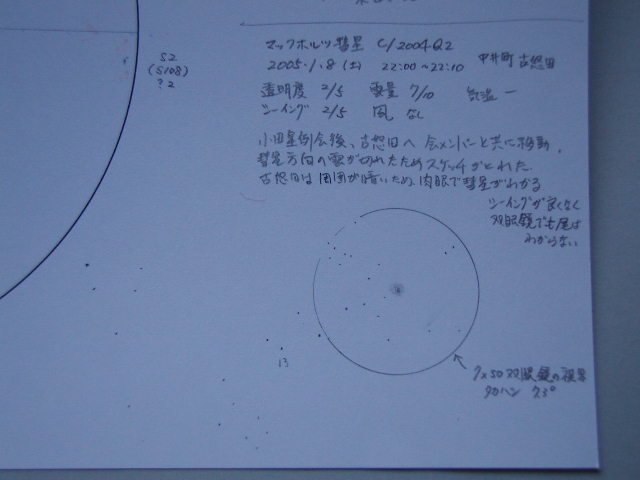 S2
(S108)
? 2
マックホルツ彗星 C/2004Q2
2005.1.8 (土) 22:00~22:10 中井町 古怒田
透明度 2/5 雲量 7/10 気温 一
シーイング 2/5 風 なし
小田星例会後、古怒田へ 会メンバーと共に移動.
彗星方向の雲が切れたためスケッチがとれた.
古怒田は周囲が暗いため、肉眼で彗星がわかる
シーイングが良くなく
双眼鏡でも尾は
わからない
13
7×50双眼鏡の視界
タカハシ 7.3°